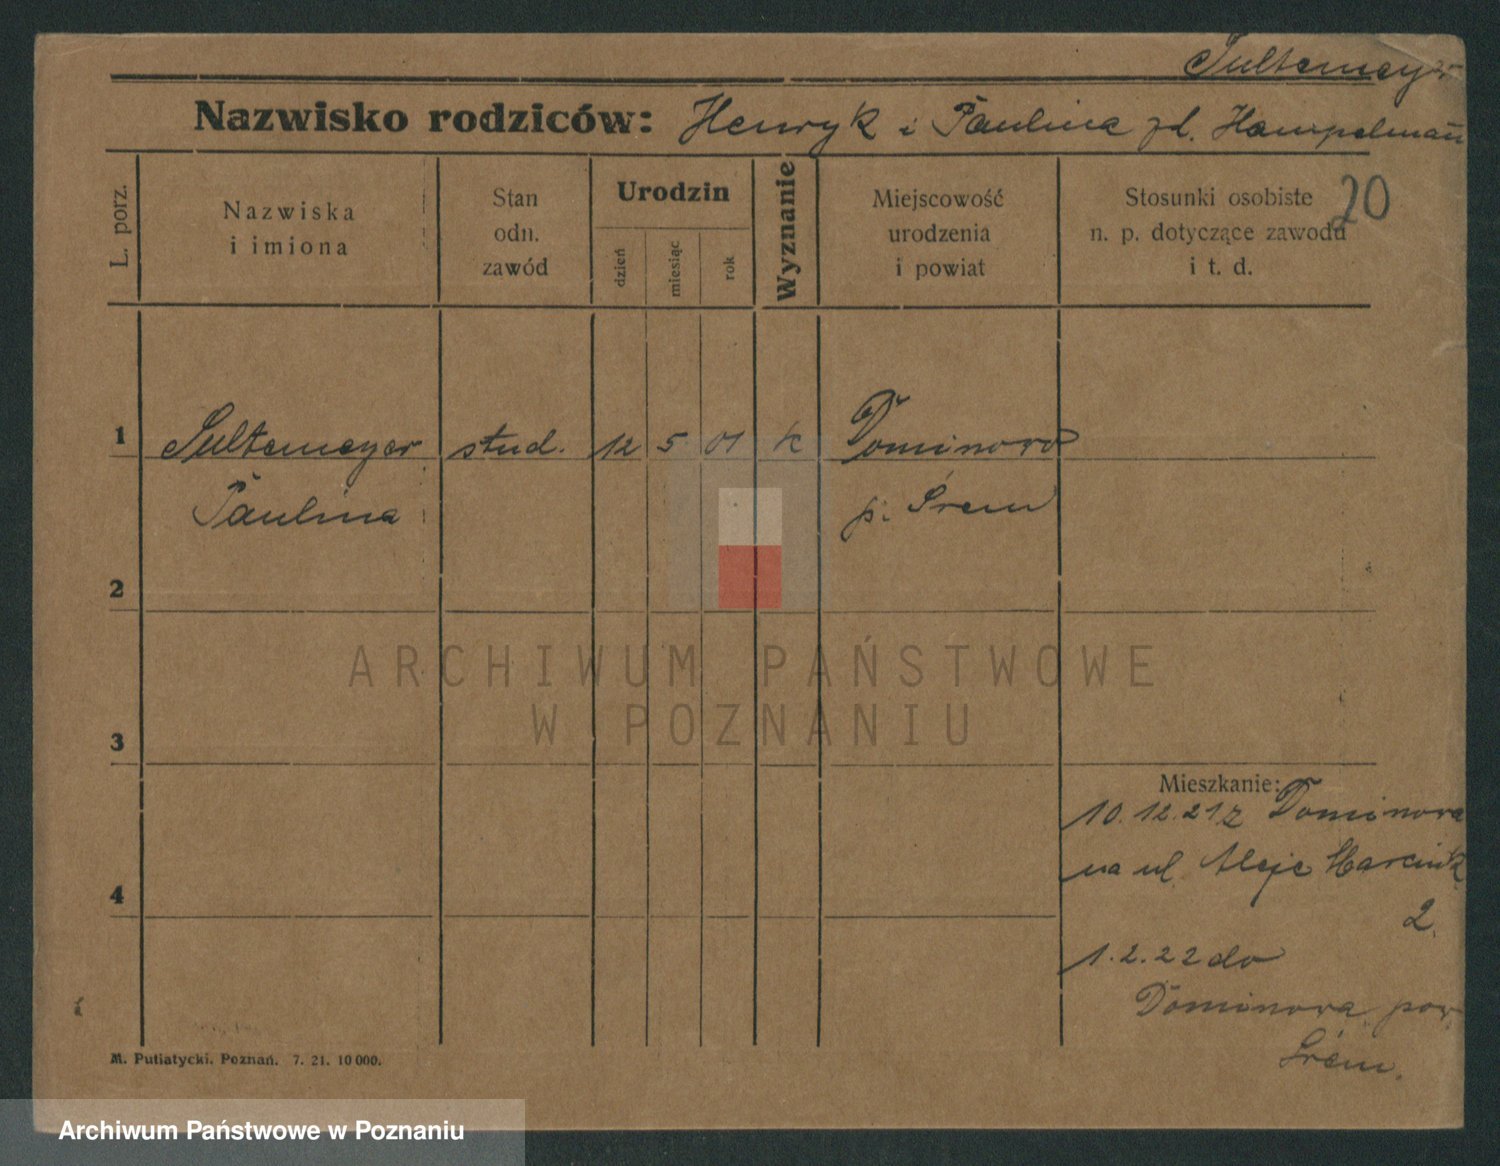 Sultemeyer
Nazwisko rodziców: Henryk i Paulina zd. Hampelmann
20
L. porz.
Nazwiska
i imiona
Stan
odn.
zawód
Urodzin
dzień
miesiąc
rok
Wyznanie
Miejscowość
urodzenia
i powiat
Stosunki osobiste
n. p. dotyczące zawodu
i t. d.
1 Sultemeyer stud. 12 5 01 k Dominowo
Paulina p. Śrem
2
ARCHIWUM PAŃSTWOWE
W POZNANIU
3
Mieszkanie:
10.12.21 z Dominowa
na ul. Aleje Marcink.
4
2.
1.2.22 do
Dominowa pow.
Śrem.
M. Putiatycki. Poznań. 7. 21. 10 000.
Archiwum Państwowe w Poznaniu